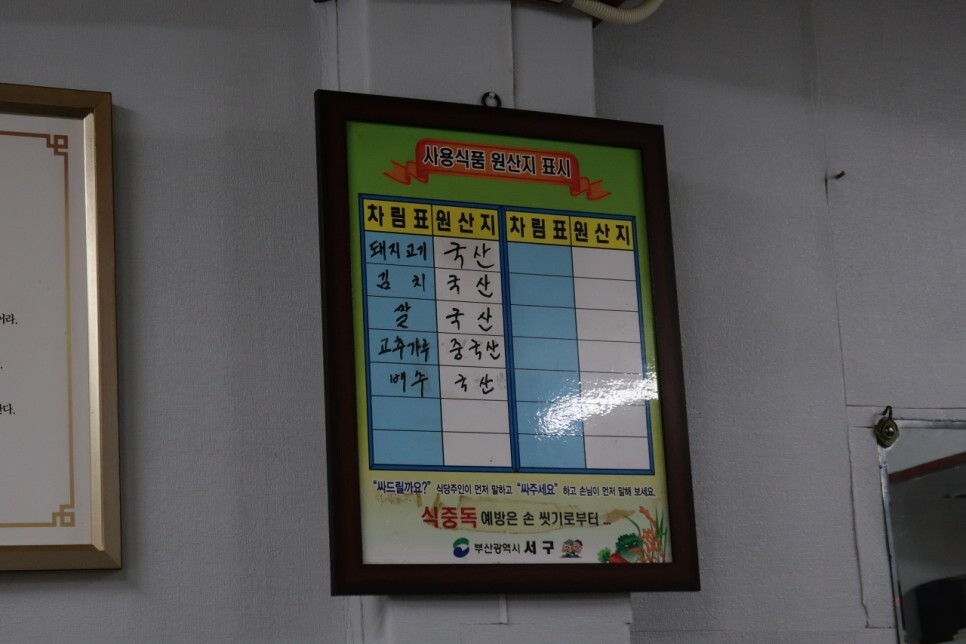 사용식품 원산지 표시
차림표 원산지 차림표 원산지
돼지고기 국산
김치 국산
쌀 국산
고추가루 중국산
배추 국산
"싸드릴까요?" 식당주인이 먼저 말하고 "싸주세요" 하고 손님이 먼저 말해 보세요.
식중독 예방은 손 씻기로부터 ...
부산광역시 서구